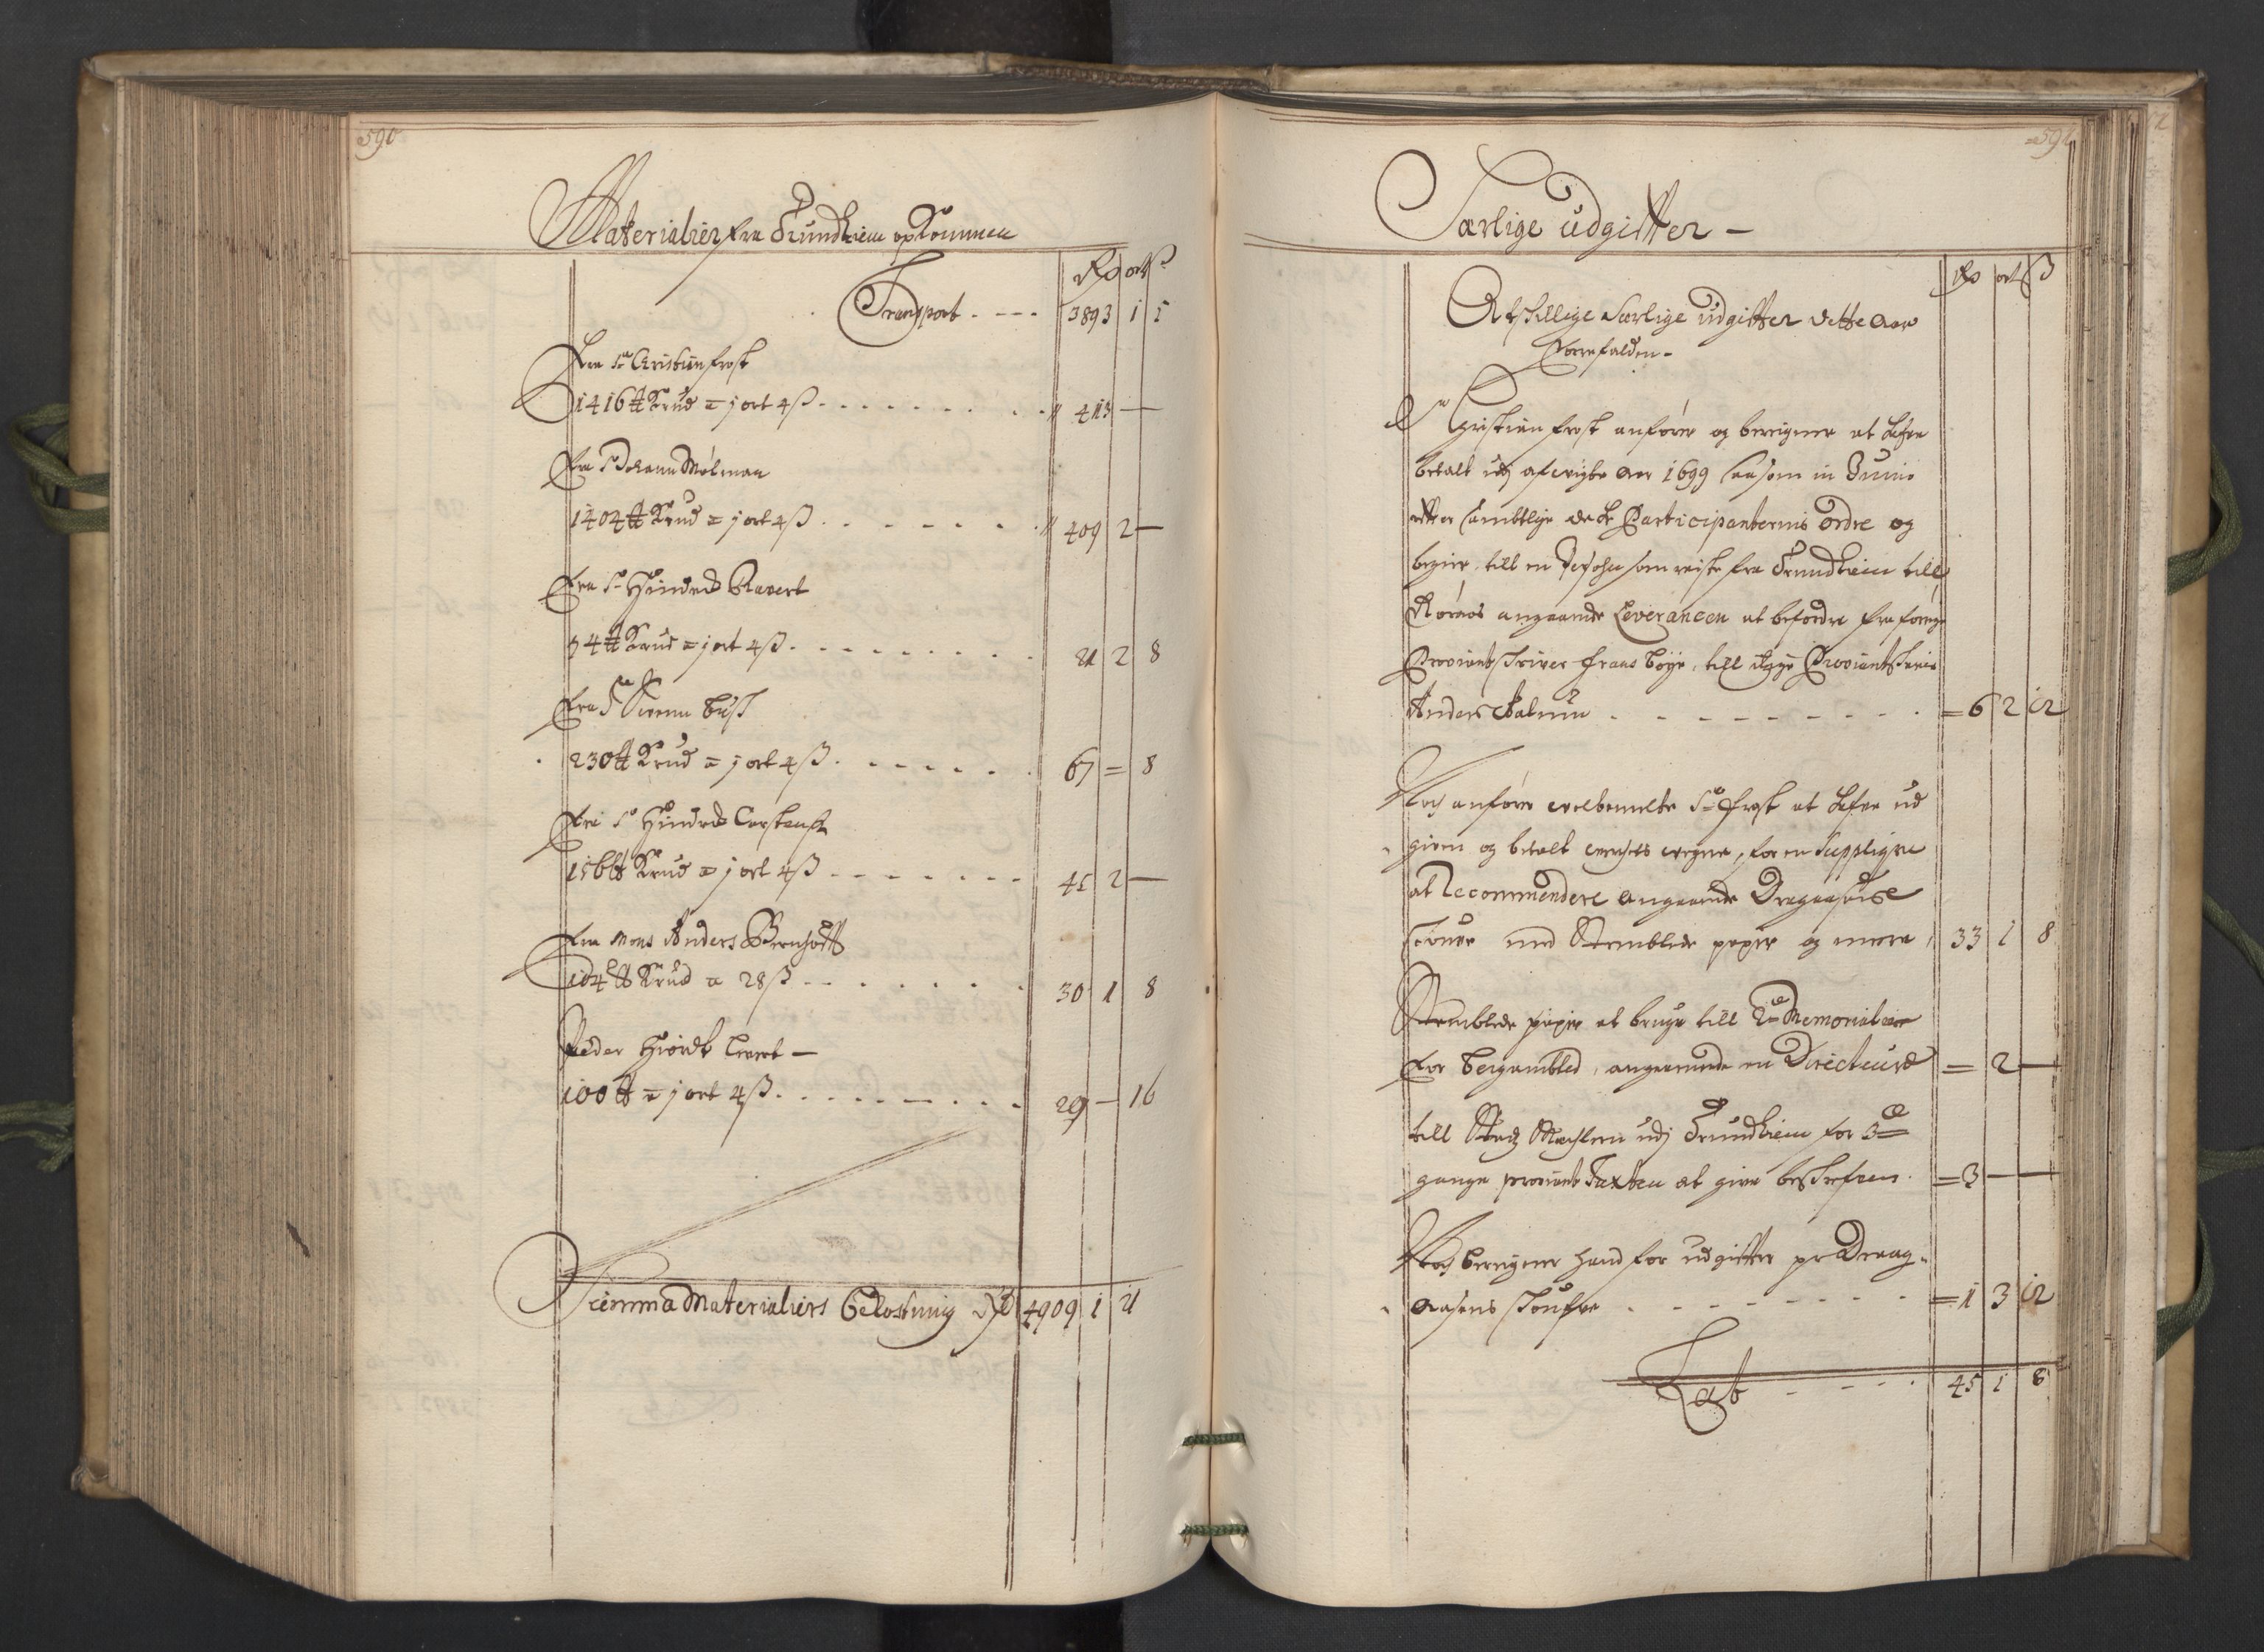 590
Materialier fra Trundhiem opkommen
Rdr ort ß
Transport - - - - 3893 1 5
Fra Sr Christian frost
1416 ℔ Krud a 1 ort 4 ß - - - - 413 —
Fra Sr Johann Mølman
1404 ℔ Krud a 1 ort 4 ß - - - - 409 2 —
Fra Sr Hindrich Ravert
74 ℔ Krud a 1 ort 4 ß - - - - 21 2 8
Fra Sr Svenn Busk
230 ℔ Krud a 1 ort 4 ß - - - - 67 = 8
Fra Sr Hindrich Carstens
156 ℔ Krud a 1 ort 4 ß - - - - 45 2 —
Fra Mons Anders Bernhoft
104 ℔ Krud a 28 ß - - - - 30 1 8
Peder Hiordt levert —
100 ℔ a 1 ort 4 ß - - - - 29 — 16
Summa Materialiers bekostning Rdr 4909 1 21
591
Særlige udgifter —
Rdr ort ß
Atskillige Særlige udgifter dette Aar
forrefalden -
Sr Christian frost anfører og bereigner at hafve
betalt udj afvigte Aar 1699 saasom in Junio
efter samtlige Participanternis Ordre og
begier, till en Person som reiste fra Trundhiem till
Røraas angaaende Leverancen at befordre fra forrige
Proviantskriver frans bøye, till Proviantskrifver
Anders - - - - = 6 2 12
Noch anfører velbemelte Sr frost at hafve ud
given og betalt verchets vegne, for en Supplique
at Recommendere angaaende Dragaasens
skouve med Stemblede papir og mere, 33 1 8
Stemblede papir at bruge till 2de Memorialer
for bergambted, angaaende en Directeur = 2 —
till Mechleren udj Trundhiem for 3de
gange proviant Taxten at give beskrefven. = 3 — —
Noch bereigner hand for udgifter pr Draag-
aasens skoufve - - - - = 1 3 12
Lat - - - - 45 1 8